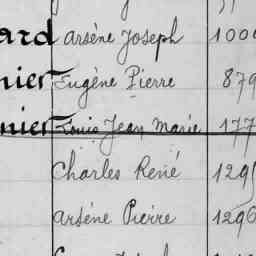 ard Arsène Joseph 100
nier Eugène Pierre 879
nier Louis Jean Marie 177
Charles René 129
Arsène Pierre 1296